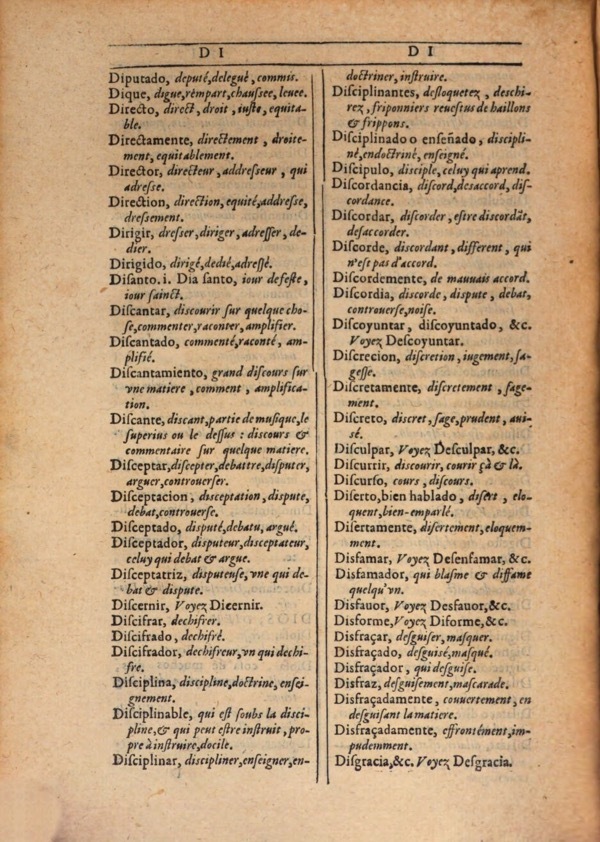 D I
Diputado, deputé, delegué, commis.
Dique, digue, rempart, chaussee, leuee.
Directo, direct, droit, iuste, equita-
ble.
Directamente, directement, droite-
ment, equitablement.
Director, directeur, addresseur, qui
adresse.
Direction, direction, equité, addresse,
dressement.
Dirigir, dresser, diriger, adresser, de-
dier.
Dirigido, dirigé, dedié, adressé.
Disanto .i. Dia santo, iour defeste,
iour sainct.
Discantar, discourir sur quelque cho-
se, commenter, raconter, amplifier.
Discantado, commenté, raconté, am-
plifié.
Discantamiento, grand discours sur
vne matiere, comment, amplifica-
tion.
Discante, discant, partie de musique, le
superius ou le dessus : discours &
commentaire sur quelque matiere.
Disceptar, discepter, debattre, disputer,
arguer, controuerser.
Disceptacion, disceptation, dispute,
debat, controuerse.
Disceptado, disputé, debatu, argué.
Disceptador, disputeur, disceptateur,
celuy qui debat & argue.
Disceptatriz, disputeuse, vne qui de-
bat & dispute.
Discernir, Voyez Dicernir.
Discifrar, dechifrer.
Discifrado, dechifré.
Discifrador, dechifreur, vn qui dechi-
fre.
Disciplina, discipline, doctrine, ensei-
gnement.
Disciplinable, qui est soubs la disci-
pline, & qui peut estre instruit, pro-
pre à instruire, docile.
Disciplinar, discipliner, enseigner, en-
D I
doctriner, instruire.
Disciplinantes, desloquetez, deschi-
rez, friponniers reuestus de haillons
& frippons.
Disciplinado o enseñado, discipli-
né, endoctriné, enseigné.
Discipulo, disciple, celuy qui aprend.
Discordancia, discord, desaccord, dis-
cordance.
Discordar, discorder, estre discordāt,
desaccorder.
Discorde, discordant, different, qui
n'est pas d'accord.
Discordemente, de mauuais accord.
Discordia, discorde, dispute, debat,
controuerse, noise.
Discoyuntar, discoyuntado, &c.
Voyez Descoyuntar.
Discrecion, discretion, iugement, sa-
gesse.
Discretamente, discretement, sage-
ment.
Discreto, discret, sage, prudent, aui-
sé.
Disculpar, Voyez Desculpar, &c.
Discurrir, discourir, courir çà & là.
Discurso, cours, discours.
Diserto, bien hablado, disert, elo-
quent, bien-emparlé.
Disertamente, disertement, eloquem-
ment.
Disfamar, Voyez Desenfamar, &c.
Disfamador, qui blasme & diffame
quelqu'vn.
Disfauor, Voyez Desfauor, &c.
Disforme, Voyez Diforme, &c.
Disfraçar, desguiser, masquer.
Disfraçado, desguisé, masqué.
Disfraçador, qui desguise.
Disfraz, desguisement, mascarade.
Disfraçadamente, couuertement, en
desguisant la matiere.
Disfraçadamente, effrontément, im-
pudemment.
Disgracia, &c. Voyez Desgracia.